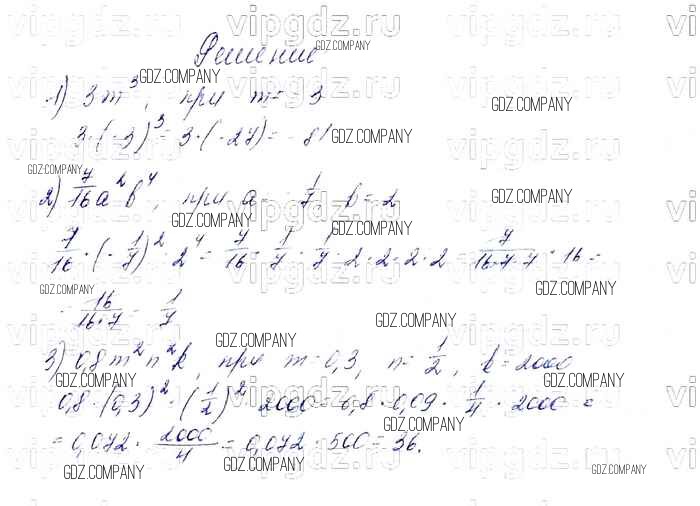 Решение
1) 3m³, при m = -3
3·(-3)³ = 3·(-27) = -81
2) 7/16 a²b⁴, при a = -1/7, b = 2
7/16 · (-1/7)² · 2⁴ = 7/16 · 1/7 · 1/7 · 2·2·2·2 = 7/(16·7·7) · 16 =
= 16/(16·7) = 1/7
3) 0,8m²n²k, при m = 0,3, n = 1/2, k = 2000
0,8 · (0,3)² · (1/2)² · 2000 = 0,8 · 0,09 · 1/4 · 2000 =
= 0,072 · 2000/4 = 0,072 · 500 = 36.